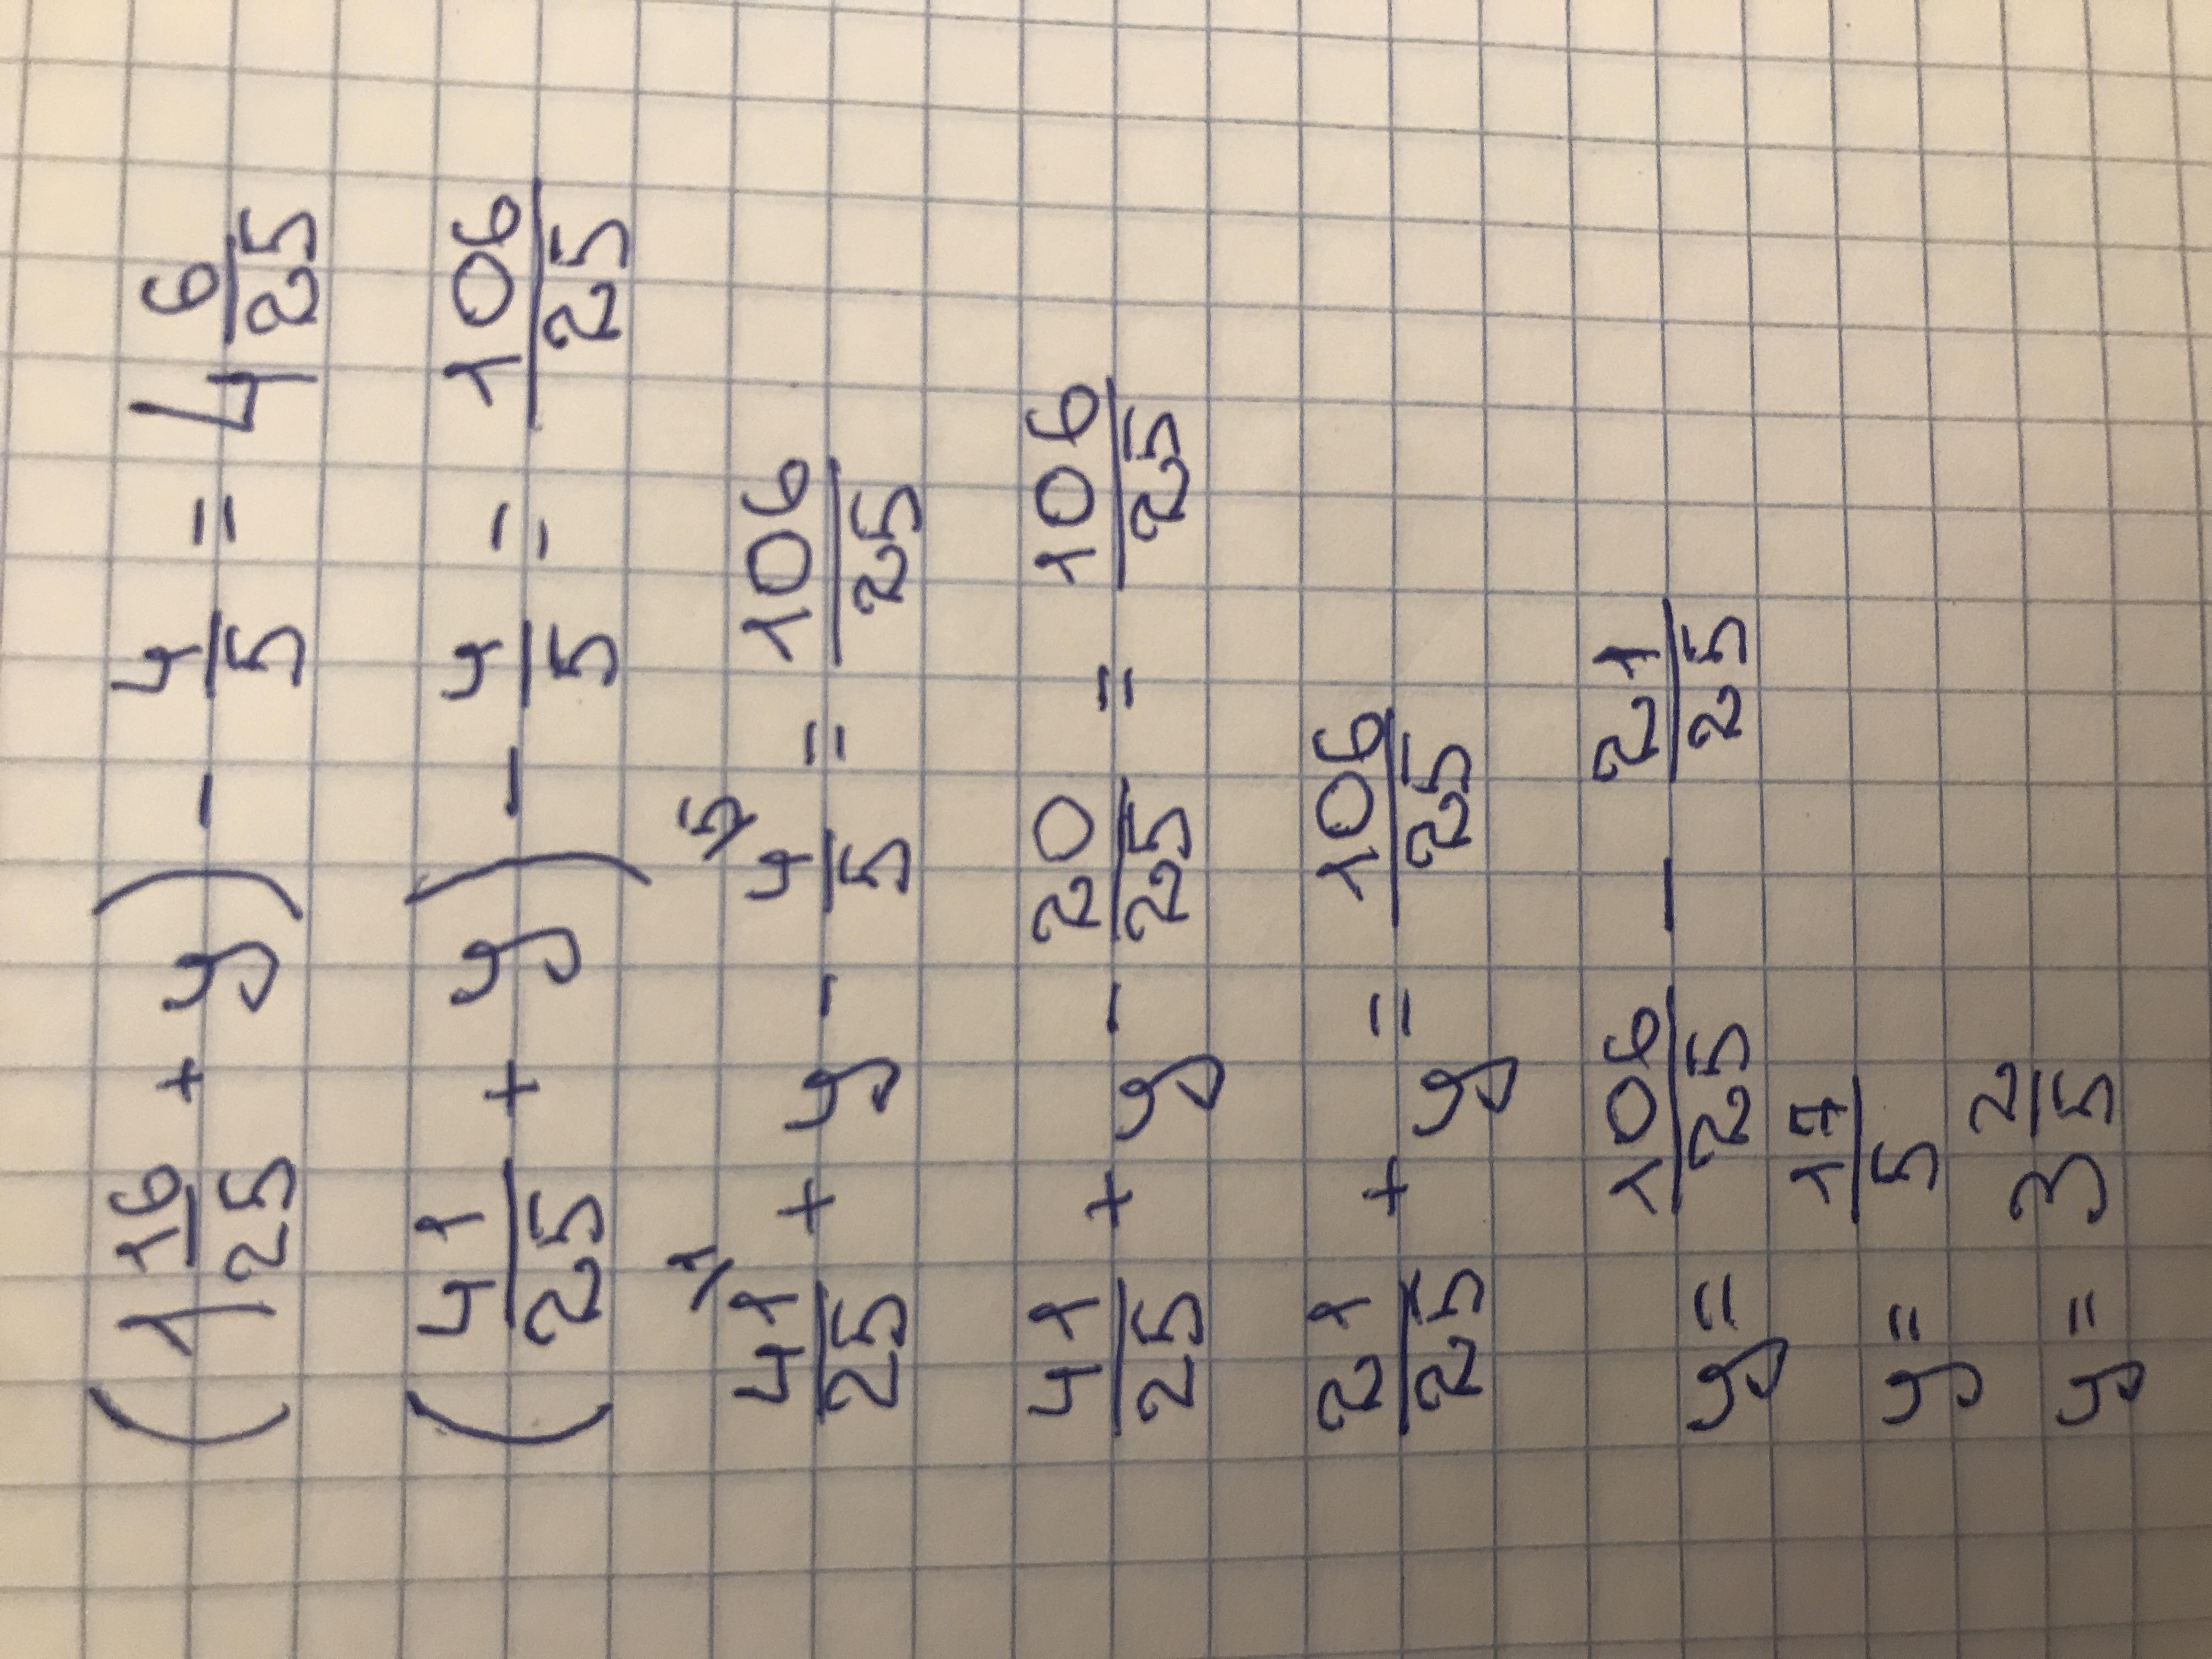 (1 16/25 + y) - 4/5 = 4 6/25
(41/25 + y) - 4/5 = 106/25
41/25 \1 + y - 4/5 \5 = 106/25
41/25 + y - 20/25 = 106/25
21/25 + y = 106/25
y = 106/25 - 21/25
y = 17/5
y = 3 2/5